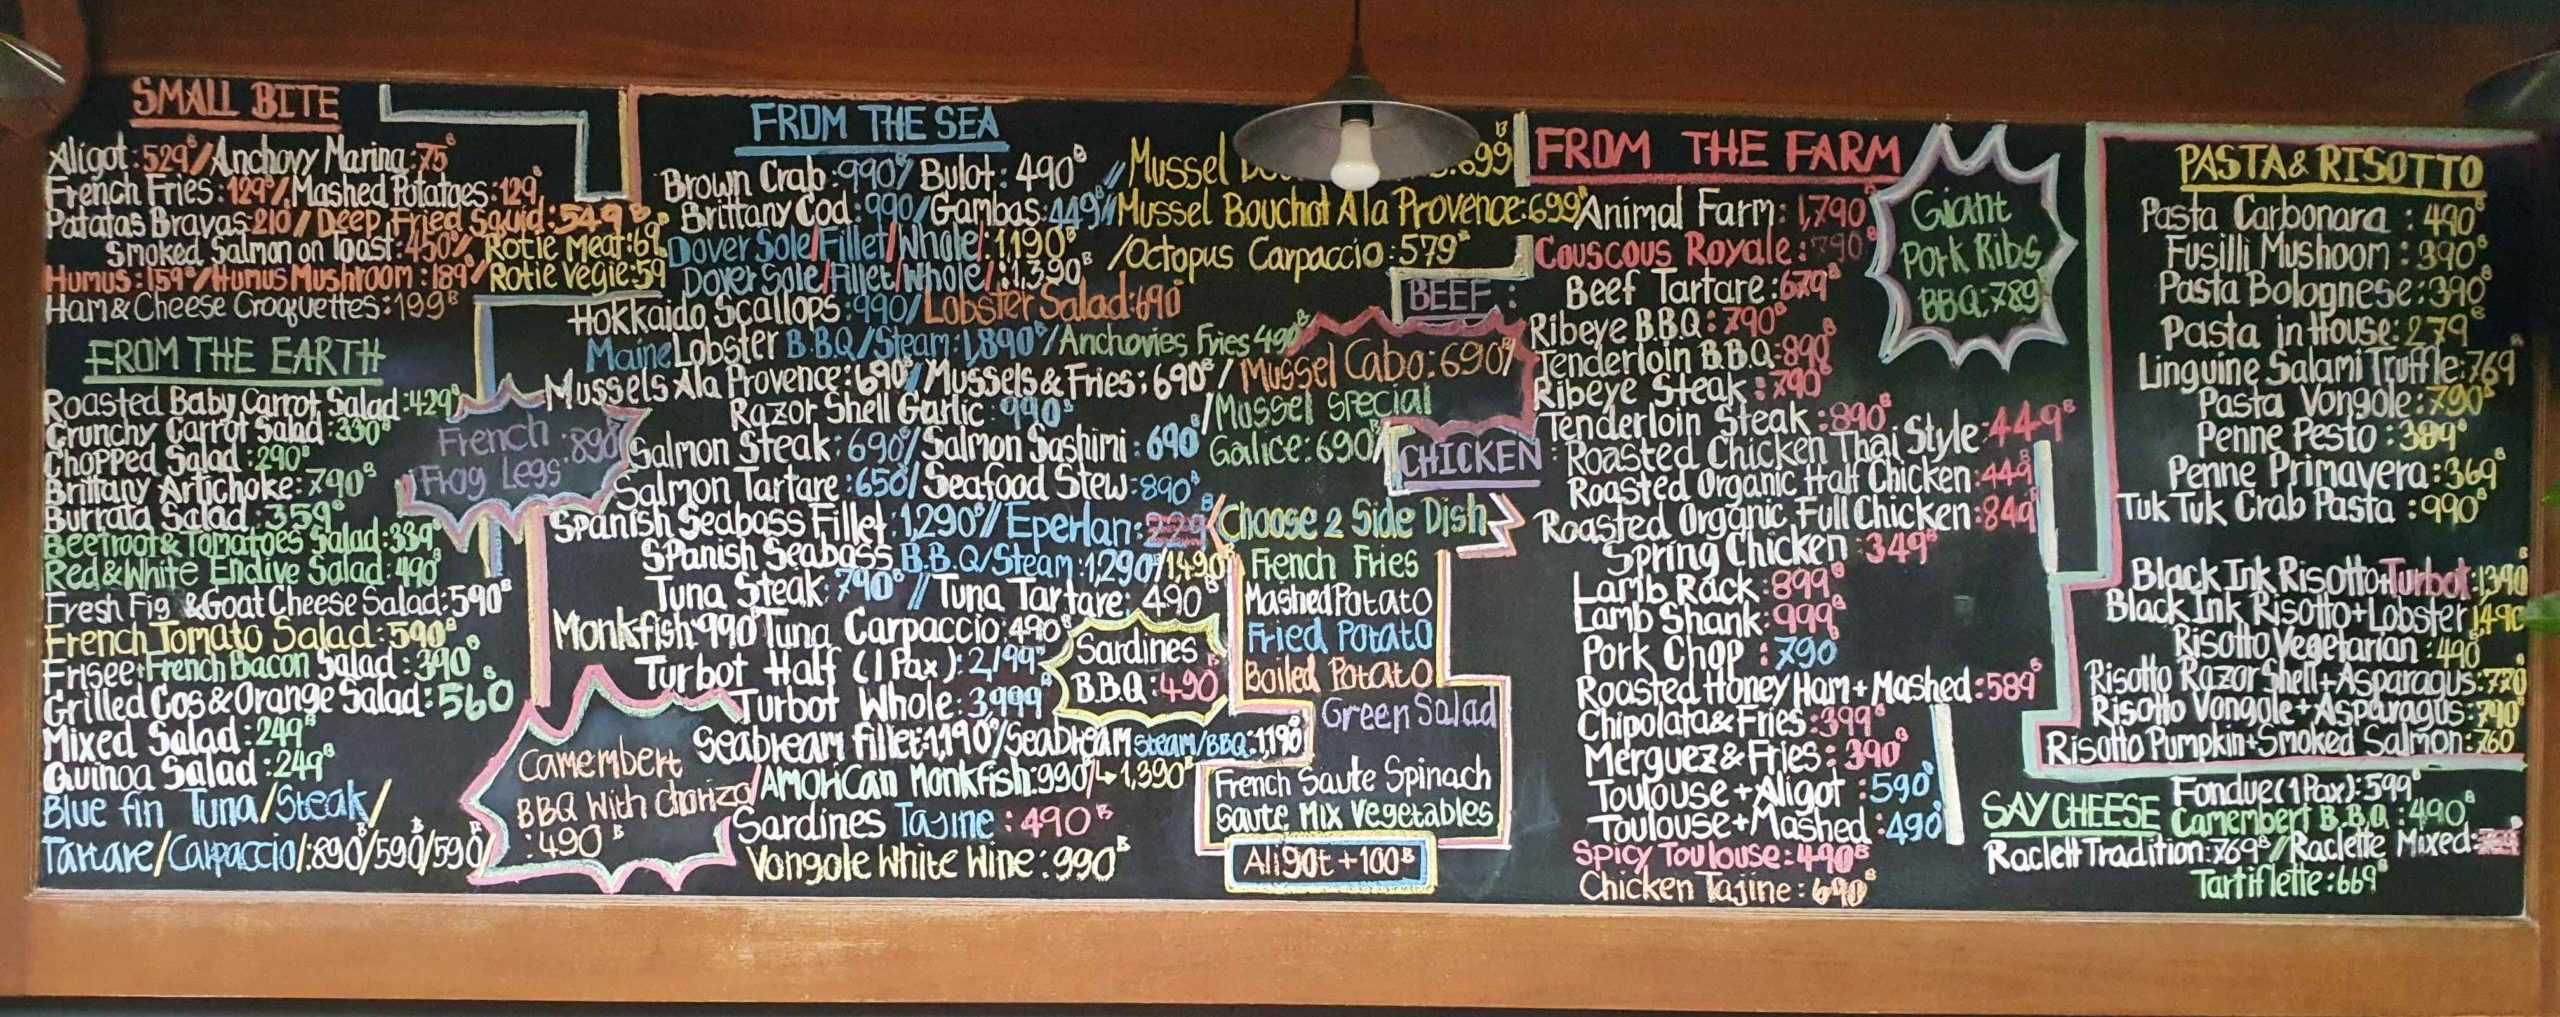 SMALL BITE
Aligot:529฿/Anchovy Marina:75฿
French Fries:129฿/Mashed Potatoes:129
Patatas Bravas:210/Deep Fried Squid:549฿
Smoked Salmon on Toast:450฿/Rotie Meat:69
Humus:159฿/Humus Mushroom:189฿/Rotie Vegie:59
Ham & Cheese Croquettes:199฿
FROM THE EARTH
Roasted Baby Carrot Salad:429฿
Crunchy Carrot Salad:330฿
Chopped Salad:290฿
Brittany Artichoke:790฿
Burrata Salad:359฿
Beetroot & Tomatoes Salad:339฿
Red & White Endive Salad:490฿
Fresh Fig & Goat Cheese Salad:590฿
French Tomato Salad:590฿
Frisee+French Bacon Salad:390฿
Grilled Cos & Orange Salad:560฿
Mixed Salad:249฿
Quinoa Salad:249฿
Blue fin Tuna/Steak/
Tartare/Carpaccio/:890฿/590฿/590฿
French Frog Legs:890
Camembert
BBQ With Chorizo
:490฿
FROM THE SEA
Brown Crab:990฿/Bulot:490฿
Brittany Cod:990/Gambas:449฿
Dover Sole/Fillet/Whole/:1,190฿
Dover Sole/Fillet/Whole/:1,390฿
Hokkaido Scallops:990/Lobster Salad:690
Maine Lobster B.B.Q/Steam:1,890฿/Anchovies Fries 490฿
Mussels Ala Provence:690฿/Mussels & Fries:690฿/
Razor Shell Garlic:990฿
Salmon Steak:690฿/Salmon Sashimi:690฿
Salmon Tartare:650/Seafood Stew:890฿
Spanish Seabass Fillet:1,290฿//Eperlan:229฿
Spanish Seabass B.B.Q/Steam:1,290/1,490฿
Tuna Steak:790฿//Tuna Tartare:490฿
Monkfish:990฿ Tuna Carpaccio:490฿
Turbot Half (1 Pax):2,199฿
Turbot Whole:3,999฿
Seabream Fillet:1,190฿/Seabream Steam/BBQ:1,190
/AMORICAN Monkfish:990/↳1,390฿
Sardines Tajine:490฿
Vongole White Wine:990฿
Sardines
B.B.Q:490฿
//Mussel 699฿
//Mussel Bouchot Ala Provence:699฿
/Octopus Carpaccio:579฿
Mussel Cabo:690฿/
/Mussel special
Galice:690฿
Choose 2 Side Dish
French Fries
Mashed Potato
Fried Potato
Boiled Potato
Green Salad
French Saute Spinach
Saute Mix Vegetables
Aligot+100฿
FROM THE FARM
Animal Farm:1,790฿
Couscous Royale:790฿
BEEF:
Beef Tartare:679฿
Ribeye B.B.Q:790฿
Tenderloin B.B.Q:890฿
Ribeye Steak:790฿
Tenderloin Steak:890฿
CHICKEN:
Roasted Chicken Thai Style:449฿
Roasted Organic Half Chicken:449
Roasted Organic Full Chicken:849
Spring Chicken:349฿
Lamb Rack:899฿
Lamb Shank:999฿
Pork Chop:790
Roasted Honey Ham+Mashed:589฿
Chipolata & Fries:399฿
Merguez & Fries:390฿
Toulouse+Aligot:590฿
Toulouse+Mashed:490฿
Spicy Toulouse:490฿
Chicken Tajine:690฿
Giant
Pork Ribs
BBQ:789
PASTA & RISOTTO
Pasta Carbonara:490฿
Fusilli Mushoom:390฿
Pasta Bolognese:390฿
Pasta in House:279฿
Linguine Salami Truffle:769฿
Pasta Vongole:790฿
Penne Pesto:389฿
Penne Primavera:369฿
Tuk Tuk Crab Pasta:990฿
Black Ink Risotto+Turbot:1,390฿
Black Ink Risotto+Lobster 1,490
Risotto Vegetarian:490฿
Risotto Razor Shell+Asparagus:770
Risotto Vongole+Asparagus:790฿
Risotto Pumpkin+Smoked Salmon:760
SAY CHEESE
Fondue(1 Pax):599฿
Camembert B.B.Q:490฿
Raclett Tradition:769฿/Raclette Mixed:
Tartiflette:669฿